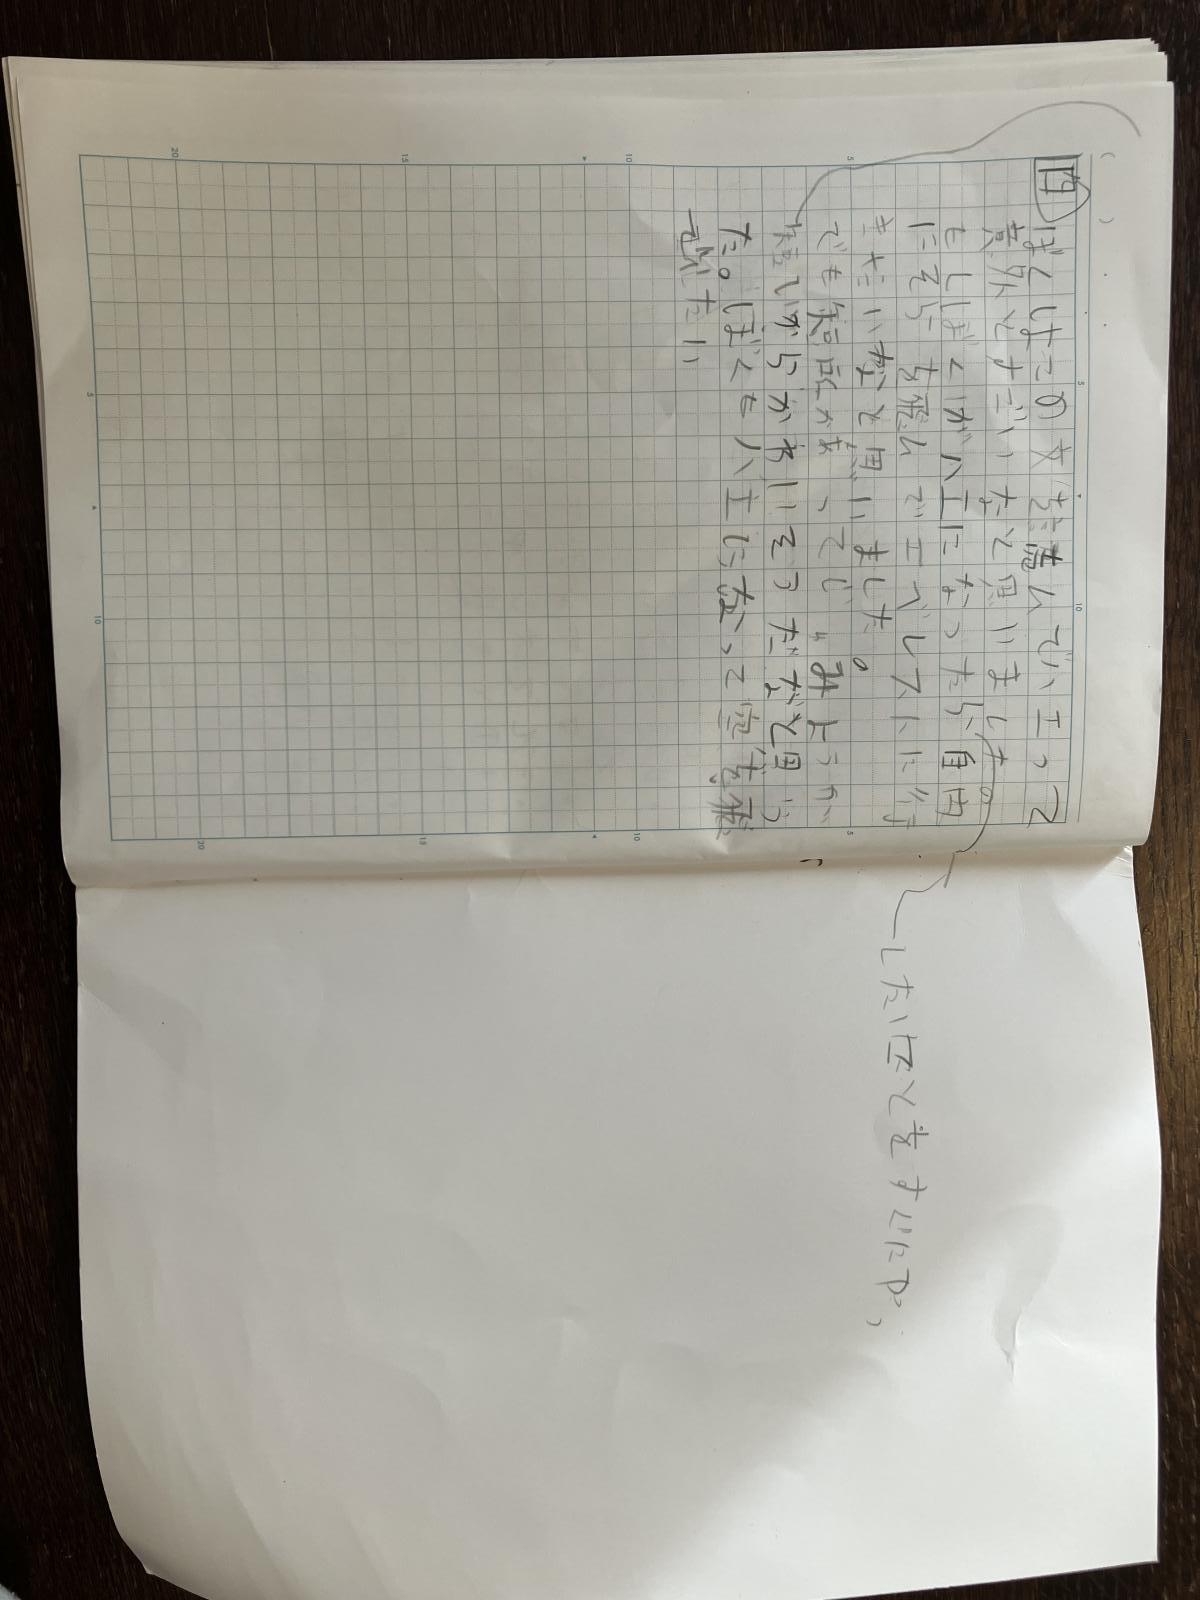 四
ぼくはこの文を読んでハエって
意外とすごいなと思いました。
もしぼくがハエになったら、自由
にそらを飛んでエベレストに行
きたいなと思いました。
でも短所があって、じゅみょうが
短いからかわいそうだなと思っ
た。ぼくもハエになって空を飛
でみたい
したいことをすぐにや
5
10
15
20